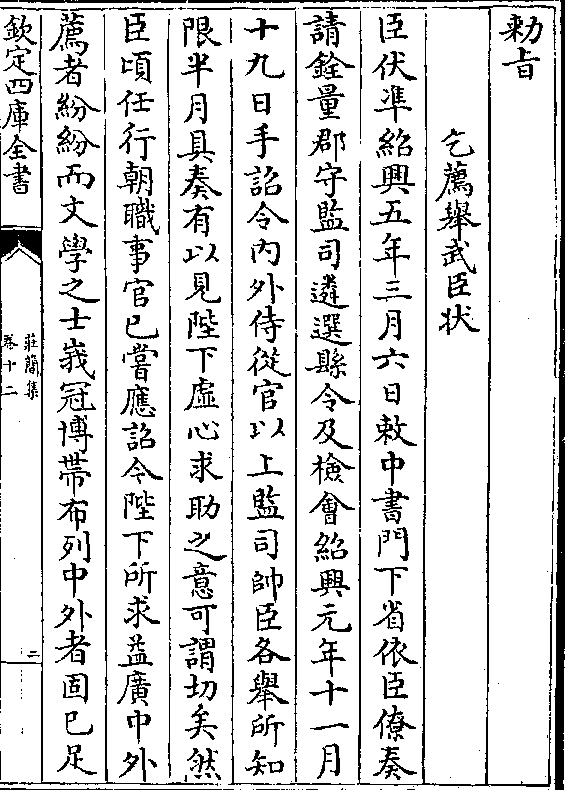 勅旨
乞薦舉武臣狀
臣伏凖紹興五年三月六日敕中書門下省依臣僚奏
請銓量郡守監司遴選縣令及檢會紹興元年十一月
十九日手詔令內外侍從官以上監司帥臣各舉所知
限半月具奏有以見陛下虛心求助之意可謂切矣然
臣頃任行朝職事官已嘗應詔令陛下所求益廣中外
薦者紛紛而文學之士峩冠博帶布列中外者固已足
欽定四庫全書
莊簡集
卷十二
二